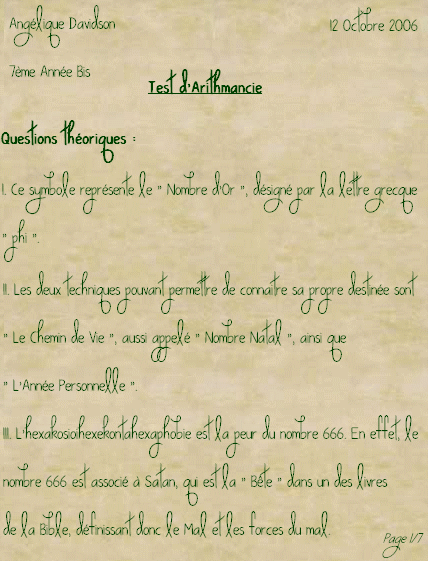 Angélique Davidson
12 Octobre 2006
7ème Année Bis
Test d'Arithmancie
Questions théoriques :
I. Ce symbole représente le " Nombre d'Or ", désigné par la lettre grecque
" phi ".
II. Les deux techniques pouvant permettre de connaitre sa propre destinée sont
" Le Chemin de Vie ", aussi appelé " Nombre Natal ", ainsi que
" L'Année Personnelle ".
III. L'hexakosioihexekontahexaphobie est la peur du nombre 666. En effet, le
nombre 666 est associé à Satan, qui est la " Bête " dans un des livres
de la Bible, définissant donc le Mal et les forces du mal.
Page 1/7